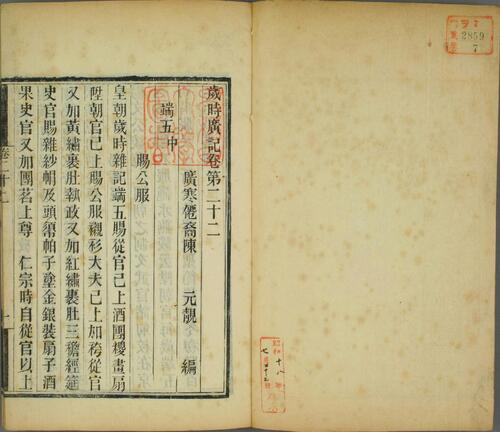 歲時廣記卷第二十二
廣寒僊裔陳 元靚 編
端五中
賜公服
皇朝歲時雜記端五賜從官已上酒團糉畫扇
陞朝官已上賜公服襯衫大夫已上加袴從官
又加黃繡裹肚執政又加紅繡裹肚三襜經筵
史官賜雜紗帽及頭𢄼帕子塗金銀裝扇子酒
果史官又加團茗上尊 仁宗時自從官以上
卷二十二
一
2859
7
昭和十八年
七月